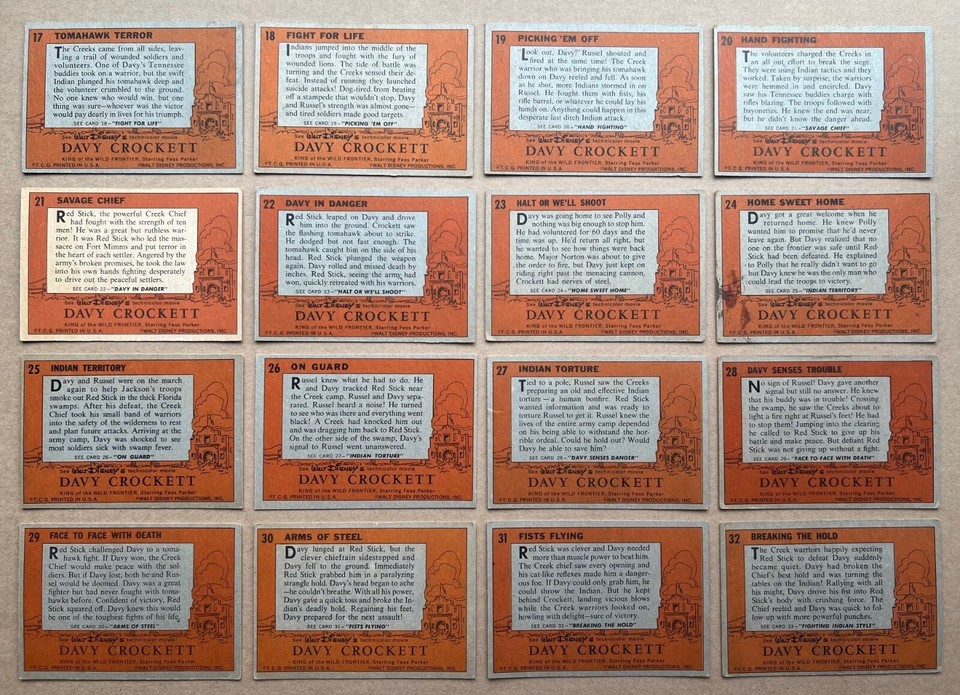 17 TOMAHAWK TERROR
The Creeks came from all sides, leav-
ing a trail of wounded soldiers and
volunteers. One of Davy's Tennessee
buddies took on a warrior, but the swift
Indian plunged his tomahawk deep and
the volunteer crumbled to the ground.
No one knew who would win, but one
thing was sure—whoever was the victor
would pay dearly in lives for his triumph.
SEE CARD 18—"FIGHT FOR LIFE"
See WALT DISNEY'S technicolor movie
DAVY CROCKETT
KING of the WILD FRONTIER, Starring Fess Parker
©T.C.G. PRINTED IN U.S.A. ©WALT DISNEY PRODUCTIONS, INC.
18 FIGHT FOR LIFE
Indians jumped into the middle of the
troops and fought with the fury of
wounded lions. The tide of battle was
turning and the Creeks sensed their de-
feat. Instead of running they launched
suicide attacks! Dog-tired from beating
off a stampede that wouldn't stop, Davy
and Russel's strength was almost gone—
and tired soldiers made good targets.
SEE CARD 19—"PICKING 'EM OFF"
See WALT DISNEY'S technicolor movie
DAVY CROCKETT
KING of the WILD FRONTIER, Starring Fess Parker
©T.C.G. PRINTED IN U.S.A. ©WALT DISNEY PRODUCTIONS, INC.
19 PICKING 'EM OFF
"Look out, Davy!" Russel shouted and
fired at the same time! The Creek
warrior who was bringing his tomahawk
down on Davy reeled and fell. As soon
as he shot, more Indians stormed in on
Russel. He fought them with fists, his
rifle barrel, or whatever he could lay his
hands on. Anything could happen in this
desperate last ditch Indian attack.
SEE CARD 20—"HAND FIGHTING"
See WALT DISNEY'S technicolor movie
DAVY CROCKETT
KING of the WILD FRONTIER, Starring Fess Parker
©T.C.G. PRINTED IN U.S.A. ©WALT DISNEY PRODUCTIONS, INC.
20 HAND FIGHTING
The volunteers charged the Creeks in
an all out effort to break the siege.
They were using Indian tactics and they
worked. Taken by surprise, the warriors
were hemmed in and encircled. Davy
saw his Tennessee buddies charge with
rifles blazing. The troops followed with
bayonettes. He knew the end was near,
but he didn't know the danger ahead.
SEE CARD 21—"SAVAGE CHIEF"
See WALT DISNEY'S technicolor movie
DAVY CROCKETT
KING of the WILD FRONTIER, Starring Fess Parker
©T.C.G. PRINTED IN U.S.A. ©WALT DISNEY PRODUCTIONS, INC.
21 SAVAGE CHIEF
Red Stick, the powerful Creek Chief
had fought with the strength of ten
men! He was a great but ruthless war-
rior. It was Red Stick who led the mas-
sacre on Fort Mimms and put terror in
the heart of each settler. Angered by the
army's broken promises, he took the law
into his own hands fighting desperately
to drive out the peaceful settlers.
SEE CARD 22—"DAVY IN DANGER"
See WALT DISNEY'S technicolor movie
DAVY CROCKETT
KING of the WILD FRONTIER, Starring Fess Parker
©T.C.G. PRINTED IN U.S.A. ©WALT DISNEY PRODUCTIONS, INC.
22 DAVY IN DANGER
Red Stick leaped on Davy and drove
him into the ground. Crockett saw
the flashing tomahawk about to strike.
He dodged but not fast enough. The
tomahawk caught him on the side of his
head. Red Stick plunged the weapon
again. Davy rolled and missed death by
inches. Red Stick, seeing the army had
won, quickly retreated with his warriors.
SEE CARD 23—"HALT OR WE'LL SHOOT"
See WALT DISNEY'S technicolor movie
DAVY CROCKETT
KING of the WILD FRONTIER, Starring Fess Parker
©T.C.G. PRINTED IN U.S.A. ©WALT DISNEY PRODUCTIONS, INC.
23 HALT OR WE'LL SHOOT
Davy was going home to see Polly and
nothing was big enough to stop him.
He had volunteered for 60 days and the
time was up. He'd return all right, but
he wanted to see how things were back
home. Major Norton was about to give
the order to fire, but Davy just kept on
riding right past the menacing cannon.
Crockett had nerves of steel.
SEE CARD 24—"HOME SWEET HOME"
See WALT DISNEY'S technicolor movie
DAVY CROCKETT
KING of the WILD FRONTIER, Starring Fess Parker
©T.C.G. PRINTED IN U.S.A. ©WALT DISNEY PRODUCTIONS, INC.
24 HOME SWEET HOME
Davy got a great welcome when he
returned home. He knew Polly
wanted him to promise that he'd never
leave again. But Davy realized that no
one on the frontier was safe until Red
Stick had been defeated. He explained
to Polly that he really didn't want to go
but Davy knew he was the only man who
could lead the troops to victory.
SEE CARD 25—"INDIAN TERRITORY"
See WALT DISNEY'S technicolor movie
DAVY CROCKETT
KING of the WILD FRONTIER, Starring Fess Parker
©T.C.G. PRINTED IN U.S.A. ©WALT DISNEY PRODUCTIONS, INC.
25 INDIAN TERRITORY
Davy and Russel were on the march
again to help Jackson's troops
smoke out Red Stick in the thick Florida
swamps. After his defeat, the Creek
Chief took his small band of warriors
into the safety of the wilderness to rest
and plan future attacks. Arriving at the
army camp, Davy was shocked to see
most soldiers sick with swamp fever.
SEE CARD 26—"ON GUARD"
See WALT DISNEY'S technicolor movie
DAVY CROCKETT
KING of the WILD FRONTIER, Starring Fess Parker
©T.C.G. PRINTED IN U.S.A. ©WALT DISNEY PRODUCTIONS, INC.
26 ON GUARD
Russel knew what he had to do. He
and Davy tracked Red Stick near
the Creek camp. Russel and Davy sepa-
rated. Russel heard a noise! He turned
to see who was there and everything went
black! A Creek had knocked him out
and was dragging him back to Red Stick.
On the other side of the swamp, Davy's
signal to Russel went unanswered.
SEE CARD 27—"INDIAN TORTURE"
See WALT DISNEY'S technicolor movie
DAVY CROCKETT
KING of the WILD FRONTIER, Starring Fess Parker
©T.C.G. PRINTED IN U.S.A. ©WALT DISNEY PRODUCTIONS, INC.
27 INDIAN TORTURE
Tied to a pole, Russel saw the Creeks
preparing an old and effective Indian
torture—a human bonfire. Red Stick
wanted information and was ready to
torture Russel to get it. Russel knew the
lives of the entire army camp depended
on his being able to withstand the hor-
rible ordeal. Could he hold out? Would
Davy be able to save him?
SEE CARD 28—"DAVY SENSES DANGER"
See WALT DISNEY'S technicolor movie
DAVY CROCKETT
KING of the WILD FRONTIER, Starring Fess Parker
©T.C.G. PRINTED IN U.S.A. ©WALT DISNEY PRODUCTIONS, INC.
28 DAVY SENSES TROUBLE
No sign of Russel! Davy gave another
signal but still no answer. He knew
that his buddy was in trouble! Crossing
the swamp, he saw the Creeks about to
light a fire right at Russel's feet! He had
to stop them! Jumping into the clearing,
he called to Red Stick to give up his
battle and make peace. But defiant Red
Stick was not giving up without a fight.
SEE CARD 29—"FACE TO FACE WITH DEATH"
See WALT DISNEY'S technicolor movie
DAVY CROCKETT
KING of the WILD FRONTIER, Starring Fess Parker
©T.C.G. PRINTED IN U.S.A. ©WALT DISNEY PRODUCTIONS, INC.
29 FACE TO FACE WITH DEATH
Red Stick challenged Davy to a toma-
hawk fight. If Davy won, the Creek
Chief would make peace with the sol-
diers. But if Davy lost, both he and Rus-
sel would be doomed. Davy was a great
fighter but had never fought with toma-
hawks before. Confident of victory, Red
Stick squared off. Davy knew this would
be one of the toughest fights of his life.
SEE CARD 30—"ARMS OF STEEL"
See WALT DISNEY'S technicolor movie
DAVY CROCKETT
KING of the WILD FRONTIER, Starring Fess Parker
©T.C.G. PRINTED IN U.S.A. ©WALT DISNEY PRODUCTIONS, INC.
30 ARMS OF STEEL
Davy lunged at Red Stick, but the
clever chieftain sidestepped and
Davy fell to the ground. Immediately
Red Stick grabbed him in a paralyzing
strangle hold. Davy's head began to ache
—he couldn't breathe. With all his power,
Davy gave a quick toss and broke the In-
dian's deadly hold. Regaining his feet,
Davy prepared for the next assault!
SEE CARD 31—"FISTS FLYING"
See WALT DISNEY'S technicolor movie
DAVY CROCKETT
KING of the WILD FRONTIER, Starring Fess Parker
©T.C.G. PRINTED IN U.S.A. ©WALT DISNEY PRODUCTIONS, INC.
31 FISTS FLYING
Red Stick was clever and Davy needed
more than muscle power to beat him.
The Creek chief saw every opening and
his cat-like reflexes made him a danger-
ous foe. If Davy could only grab him, he
could throw the Indian. But he kept
behind Crockett, landing vicious blows
while the Creek warriors looked on,
howling with delight—sure of victory.
SEE CARD 32—"BREAKING THE HOLD"
See WALT DISNEY'S technicolor movie
DAVY CROCKETT
KING of the WILD FRONTIER, Starring Fess Parker
©T.C.G. PRINTED IN U.S.A. ©WALT DISNEY PRODUCTIONS, INC.
32 BREAKING THE HOLD
The Creek warriors happily expecting
Red Stick to defeat Davy suddenly
became quiet. Davy had broken the
Chief's best hold and was turning the
tables on the Indian! Rallying with all
his might, Davy drove his fist into Red
Stick's body with crushing force. The
Chief reeled and Davy was quick to fol-
low up with more powerful punches.
SEE CARD 33—"FIGHTING INDIAN STYLE"
See WALT DISNEY'S technicolor movie
DAVY CROCKETT
KING of the WILD FRONTIER, Starring Fess Parker
©T.C.G. PRINTED IN U.S.A. ©WALT DISNEY PRODUCTIONS, INC.